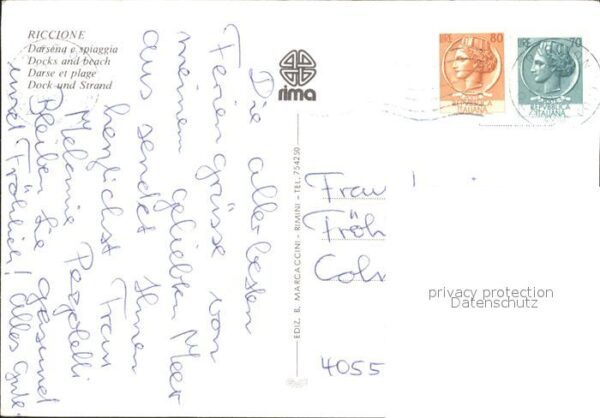 RICCIONE
Darsena e spiaggia
Docks and beach
Darse et plage
Dock und Strand
rima
80
70
REPUBBLICA
ITALIANA
ITALIANA
Die allerbesten
Feriengrüsse von
meinem geliebten Meer
aus sendet Ihnen
herzlichst Frau
Melanie
Bleiben Sie gesund
und Fröhlich! Alles Gute
EDIZ. B. MARCACCINI - RIMINI - TEL. 754250
Frau
Fröh
Coln
4055
privacy protection
Datenschutz